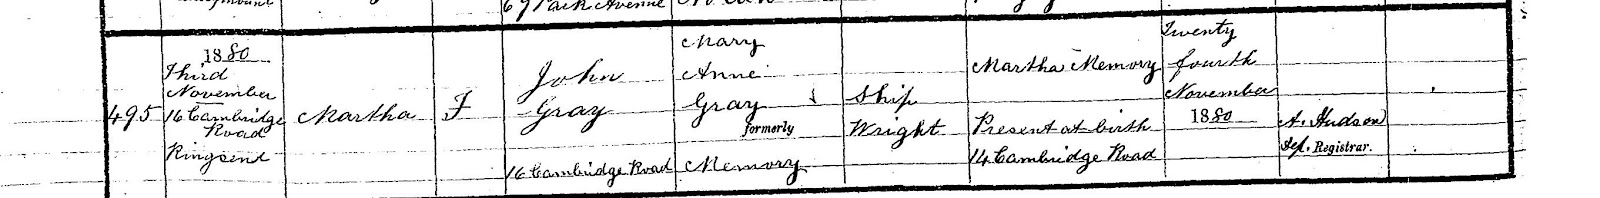 67 Park Avenue
495
1880
Third
November
16 Cambridge
Road
Ringsend
Martha
F
John
Gray
16 Cambridge Road
Mary
Anne
Gray
formerly
Memory
Ship
Wright
Martha Memory
Present at birth
14 Cambridge Road
Twenty
fourth
November
1880
A. Hudson
Dep. Registrar.